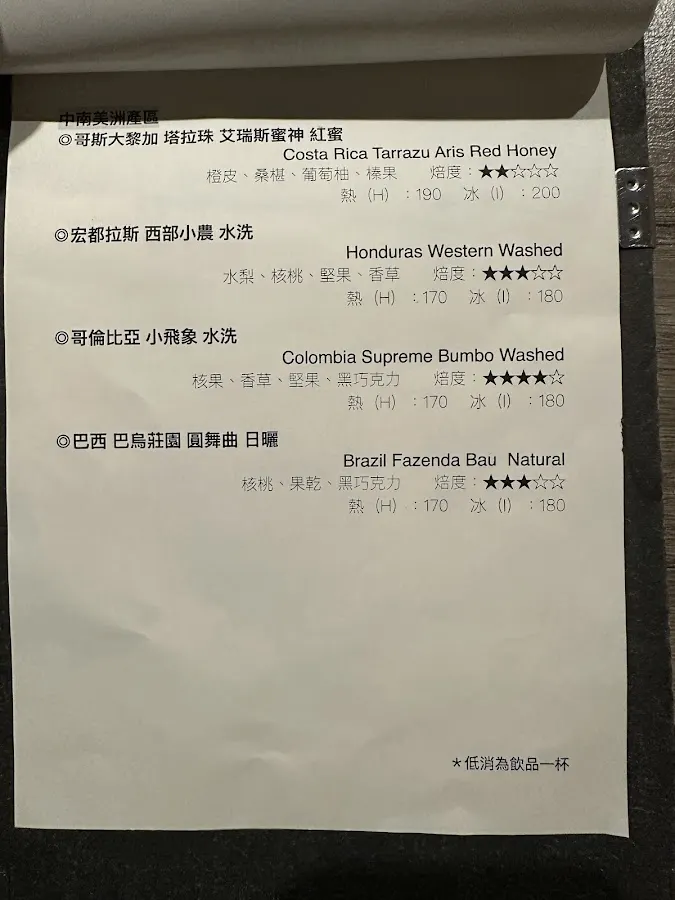 中南美洲產區
◎哥斯大黎加 塔拉珠 艾瑞斯蜜神 紅蜜
Costa Rica Tarrazu Aris Red Honey
橙皮、桑椹、葡萄柚、榛果 焙度：★★☆☆☆
熱 (H) ：190 冰 (I) ：200
◎宏都拉斯 西部小農 水洗
Honduras Western Washed
水梨、核桃、堅果、香草 焙度：★★★☆☆
熱 (H) ：170 冰 (I) ：180
◎哥倫比亞 小飛象 水洗
Colombia Supreme Bumbo Washed
核果、香草、堅果、黑巧克力 焙度：★★★★☆
熱 (H) ：170 冰 (I) ：180
◎巴西 巴烏莊園 圓舞曲 日曬
Brazil Fazenda Bau Natural
核桃、果乾、黑巧克力 焙度：★★★☆☆
熱 (H) ：170 冰 (I) ：180
＊低消為飲品一杯